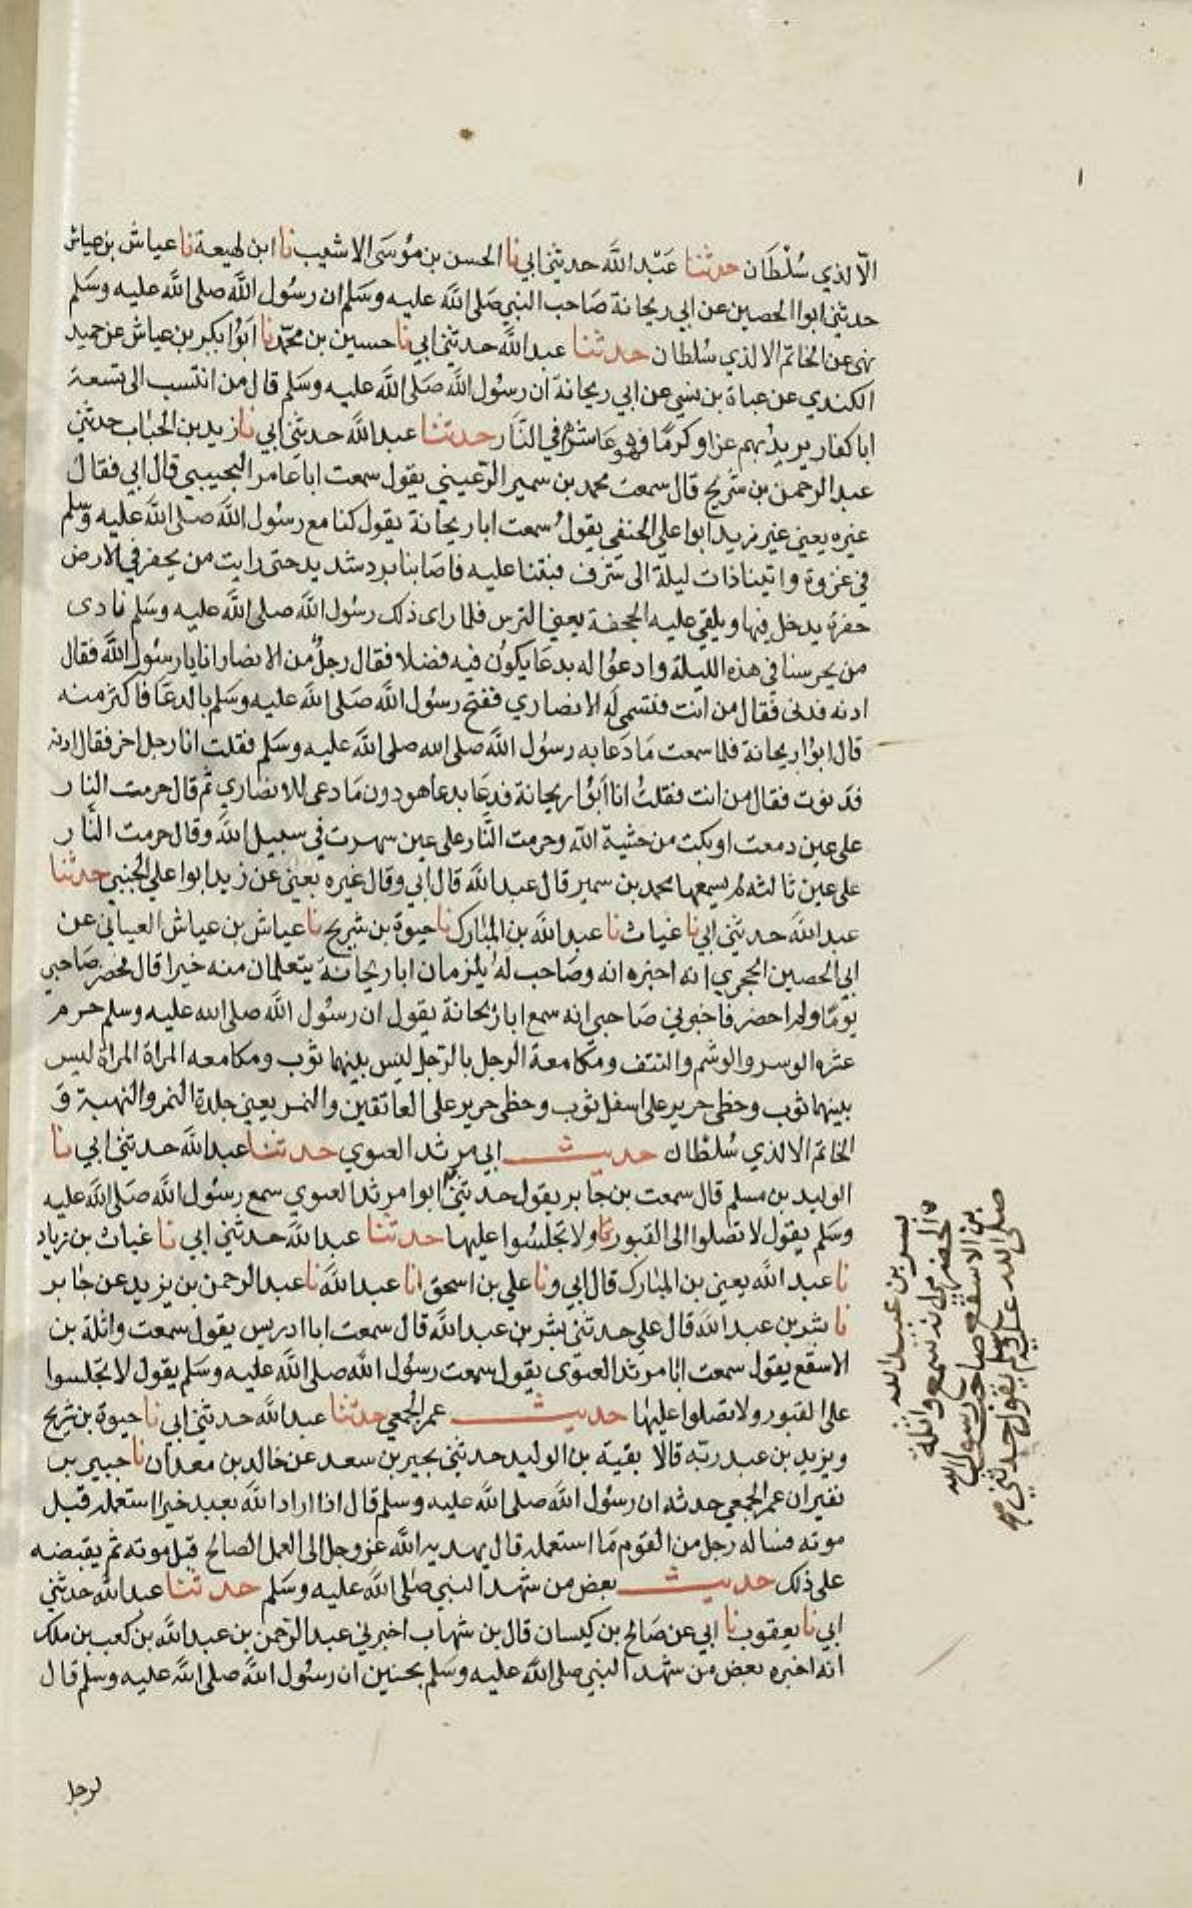 الّا لذي سُلْطَان حدثنا عَبْد اللَّه حدثني ابي نا الحسن بن مُوسَى الاشيب نا ابن لهيعة نا عياش بن عباس
حدثني ابوا الحصين عن ابي ريحانة صَاحب النبي صَلى اللَّه عليه وسَلم ان رسُول اللَّه صلى اللَّه عليه وسَلم
نهى عن الخاتم الا لذي سُلطان حدثنا عبد اللَّه حدثني ابي نا حسين بن محمّد نا ابوُا بكر بن عياش عن حميد
الكندي عن عباة بن نسي عن ابي ريحانة ان رسُول اللَّه صَلى اللَّه عليه وسَلم قال من انتسب الى تسعة
ابا كفار يريدُ بهم عزا وكرمًا فهو عَاشرهم في النَّار حدثنا عبد اللَّه حدثني ابي نا زيد بن الحُبَاب حدثني
عبد الرحمن بن شريح قال سمعت محمد بن سمير الرّعيني يقول سمعت ابا عامر التجيبي قال ابي فقال
غيره يعني غير زيد ابوا علي الحنفي يقولُ سمعت ابا ريحانة يقول كنا مع رسُول اللَّه صلى اللَّه عليه وسَلم
في غزوة واتينا ذات ليلة الى شرف فبتنا عليه فاصَابنا برد شديد حتى رايت من يحفر في الارض
حفرة يدخل فيها ويلقي عليه الحجفة يعني الترس فلما راى ذلك رسُول اللَّه صلى اللَّه عليه وسَلم نادى
من يحرسنا في هذه الليلة وادعُوا له بدعَا يكوُن فيه فضلا فقال رجلٌ من الانصَار انا يا رسُول اللَّه فقال
ادنه فدنى فقال من انت فتسمى لَه الانصاري ففتح رسُول اللَّه صَلى اللَّه عليه وسَلم بالدعَا فاكثر منه
قال ابوُا ريحانة فلما سمعت مَا دَعَا به رسوُل اللَّه صلى الله صلى اللَّه عليه وسَلم فقلت انا رجل اخر فقال ادنه
فدنوت فقال من انت فقلتُ انا ابَوُا ريحانة فدعَا بدعا هو دون مَا دعى للانصَاري ثم قال حرمت النار
على عين دمعت او بكت من خشية اللَّه وحرمت النَّار على عين سهرت في سبيل اللَّه وقال حرمت النَّار
على عين ثالثه لم يسمعها محمد بن سمير قال عبد اللَّه قال ابي وقال غيره يعني عن زيد ابوا علي الجنبي حدثنا
عبد اللَّه حدثني ابي نا غياث نا عبد اللَّه بن المُبَارك نا حيوة بن شريح نا عياش بن عياش العياني عن
ابي الحصين الحجري انه اخبره انه وصَاحب لَه يلزمان ابا ريحانة يتعلمان منه خيرا قال فحضر صَاحبي
يومًا ولم احضر فاخبرني صَاحبي انه سمع ابا رَيحانة يقول ان رسُول اللَّه صلى الله عليه وسلم حرم
عشره الوسر والوشم والنتف ومكامعة الرجل بالرّجل ليس بينهما ثوب ومكامعه المراة المراة ليس
بينهما ثوب وخطى حرير على اسفل ثوب وخطى حرير على العاتقين والنمر يعني جلدة النمر والنهبة و
الخاتم الا لذي سُلطان حديث ابي مرثد العنوي حدثنا عبد اللَّه حدثني ابي نا
الوليد بن مسلم قال سمعت بن جَابر يقول حدثني ابوا مرثد العنوي سمع رسُول اللَّه صَلى اللَّه عليه
وسَلم يقول لا تصَلوا الى القبور ولا تجلسُوا عليها حدثنا عبد اللَّه حدثني ابي نا غياث بن زياد
نا عبد اللَّه يعني بن المُبَارك قال ابي ونا علي بن اسحق انا عبد اللَّه نا عبد الرحمن بن يزيد عن جَابر
نا بشر بن عبد اللَّه قال علي حدثني بشر بن عبد اللَّه قال سمعت ابا ادريس يقول سمعت واثلة بن
الاسقع يقول سمعت ابَا مرثد العنوى يقول سمعت رسوُل اللَّه صلى اللَّه عليه وسَلم يقول لا تجلسوا
على القبور ولا تصَلوا عليها حديث عمر الجمعي حدثنا عبد اللَّه حدثني ابي نا حيوة بن شريح
ويزيد بن عبد ربّه قالا بقية بن الوليد حدثني بحير بن سعد عن خالد بن معدان نا جبير بن
نفير ان عمر الجمعي حدثه ان رسُول اللَّه صلى اللَّه عليه وسلم قال اذا اراد اللَّه بعبد خيرا استعمله قبل
موته فساله رجل من القوم مَا استعمله قال يهديه اللَّه عز وجل الى العمل الصالح قبل موته ثم يقبضه
على ذلك حديث بعض من شهد النبي صلى اللَّه عليه وسَلم حدثنا عبد اللَّه حدثني
ابي نا يعقوب نا ابي عن صَالح بن كيسان قال بن شهاب اخبرني عبد الرّحمن بن عبد اللَّه بن كعب بن ملك
انه اخبره بعض من شهد النبي صلى اللَّه عليه وسَلم بحنين ان رسُول اللَّه صلى اللَّه عليه وسلم قال
لرجل
بسر بن عبيد الله
الحضرمي انه سمع واثلة
بن الاسقع صاحب رسول الله
صلى الله عليه وسلم يقول حدثني